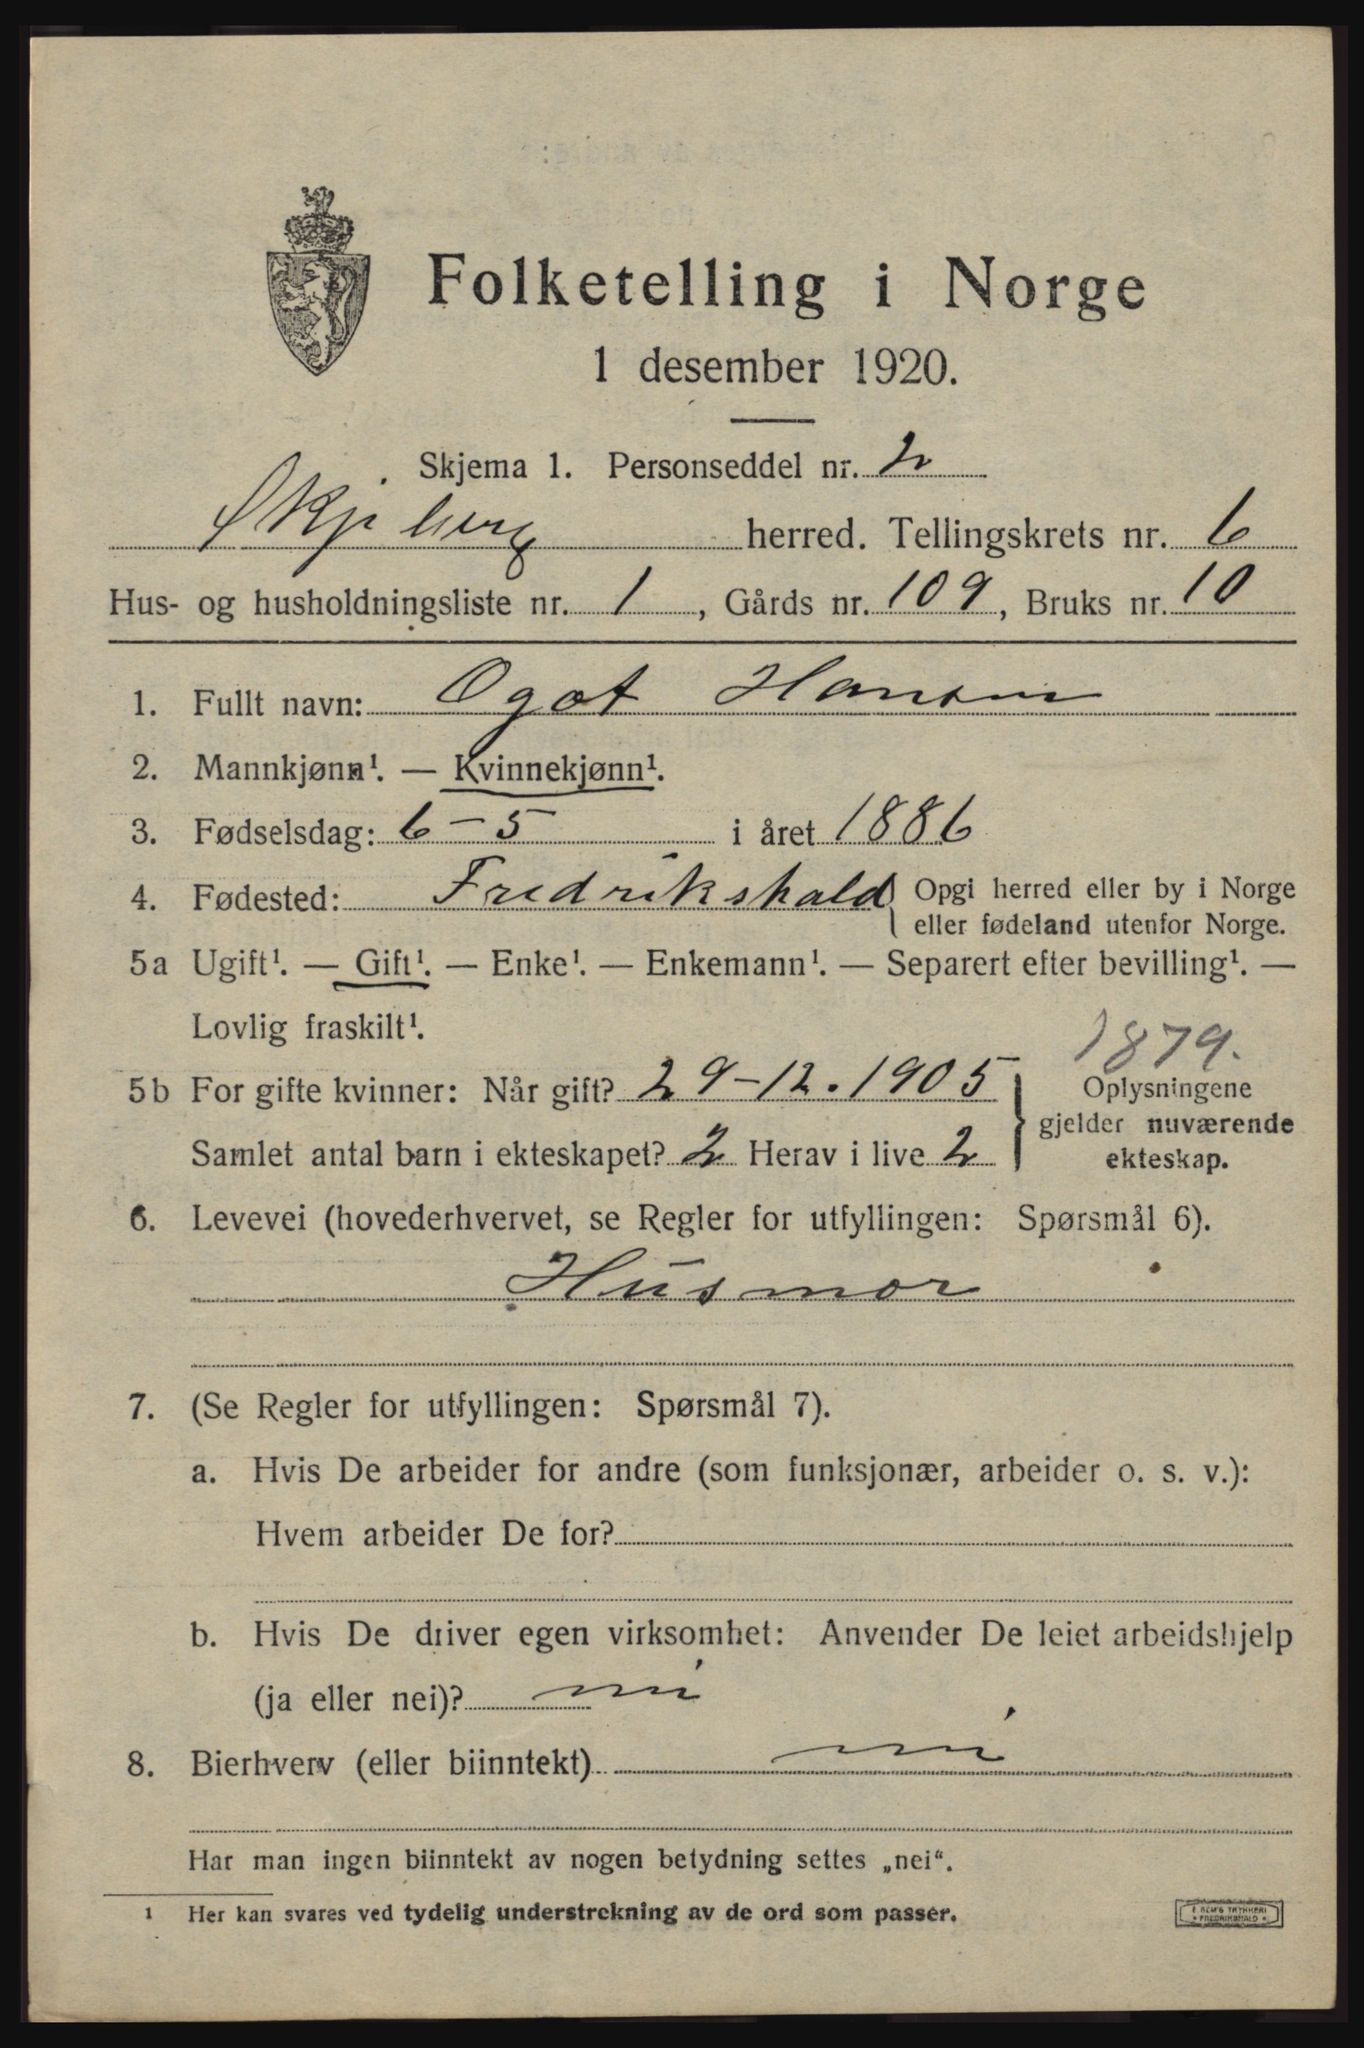 Folketelling i Norge
1 desember 1920.
Skjema 1. Personseddel nr. 2
Skjeberg herred. Tellingskrets nr. 6
Hus- og husholdningsliste nr. 1, Gårds nr. 109, Bruks nr. 10
1. Fullt navn: Ogot Hansen
2. Mannkjønn¹. — Kvinnekjønn¹.
3. Fødselsdag: 6-5 i året 1886
4. Fødested: Fredrikshald { Opgi herred eller by i Norge
eller fødeland utenfor Norge.
5a Ugift¹. — Gift¹. — Enke¹. — Enkemann¹. — Separert efter bevilling¹. —
Lovlig fraskilt¹.
1879.
5b For gifte kvinner: Når gift? 29-12.1905 } Oplysningene
gjelder nuværende
Samlet antal barn i ekteskapet? 2 Herav i live 2 ekteskap.
6. Levevei (hovederhvervet, se Regler for utfyllingen: Spørsmål 6).
Husmor
7. (Se Regler for utfyllingen: Spørsmål 7).
a. Hvis De arbeider for andre (som funksjonær, arbeider o. s. v.):
Hvem arbeider De for?
b. Hvis De driver egen virksomhet: Anvender De leiet arbeidshjelp
(ja eller nei)? nei
8. Bierhverv (eller biinntekt) nei
Har man ingen biinntekt av nogen betydning settes „nei".
¹ Her kan svares ved tydelig understrekning av de ord som passer.
E. SEM'S TRYKKERI
FREDRIKSHALD